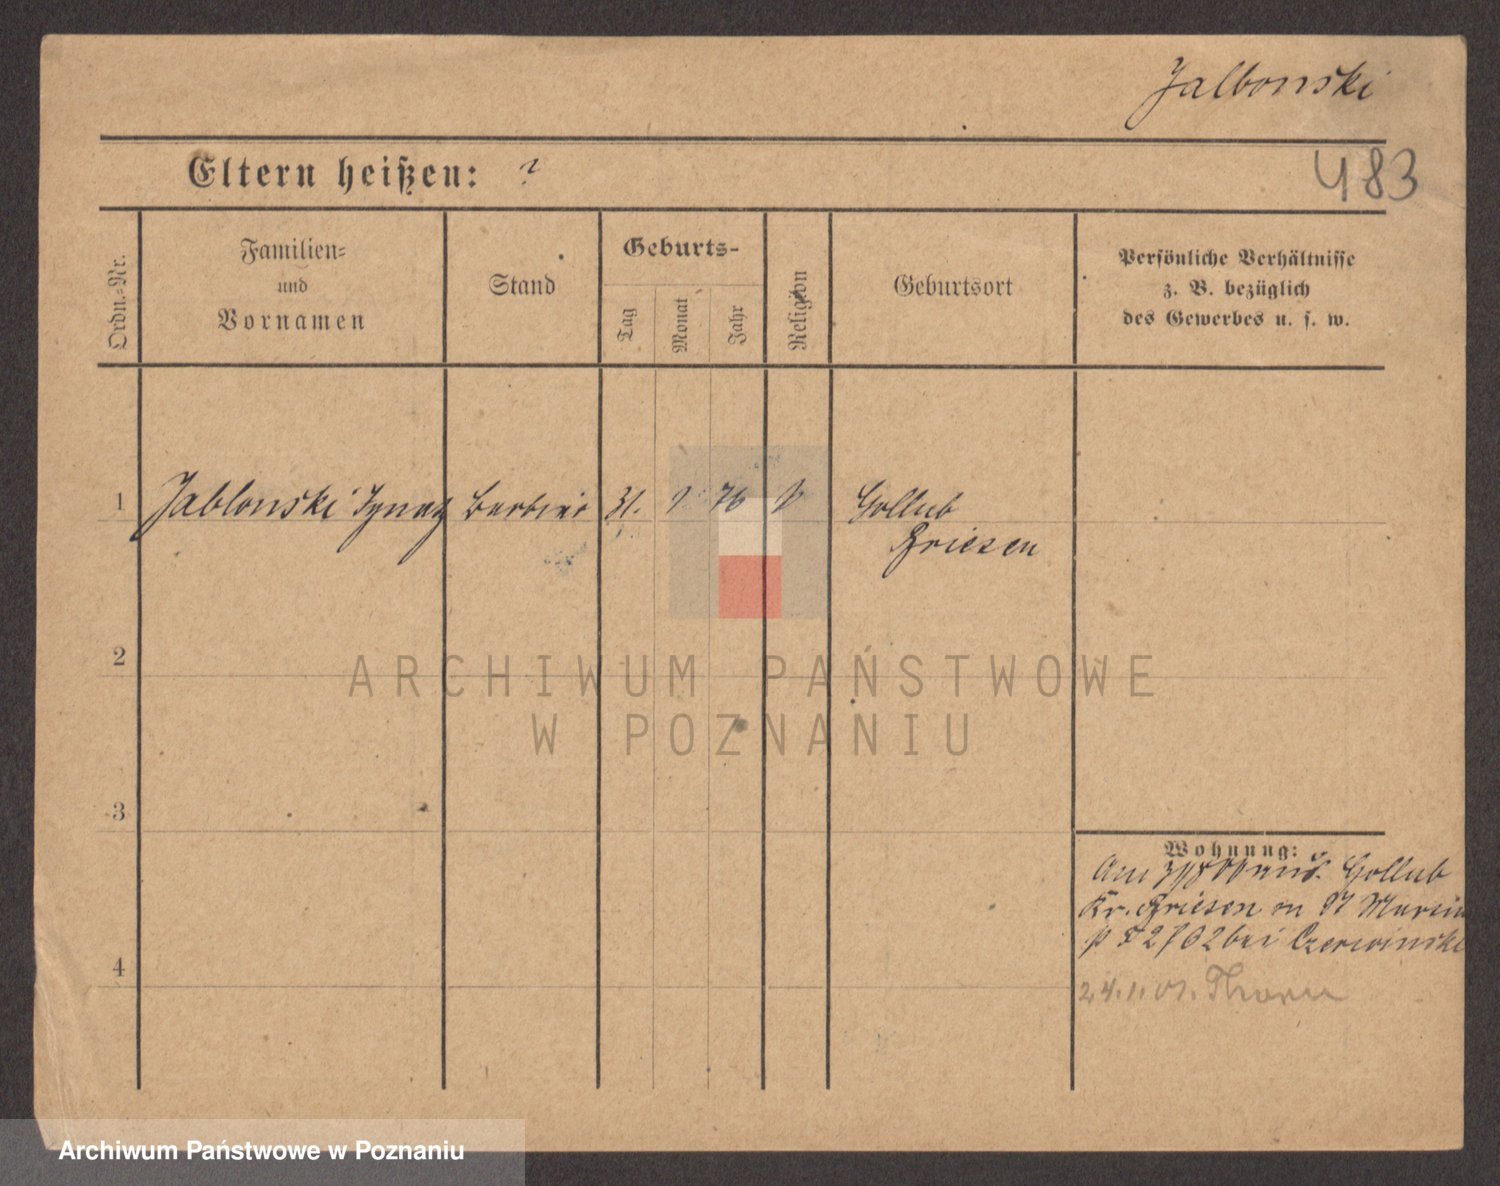 Jalbonski
483
Eltern heißen: ?
Ordn.-Nr.
Familien-
und
Vornamen
Stand
Geburts-
Tag
Monat
Jahr
Religion
Geburtsort
Persönliche Verhältnisse
z. B. bezüglich
des Gewerbes u. s. w.
1 Jablonski Ignatz Barbier 31. 76 Gollub
Briesen
2
3
4
Wohnung:
Am Gollub
Kr. Briesen in St Martin
bei Czerwinski
24.1.01. Thorn
ARCHIWUM PAŃSTWOWE
W POZNANIU
Archiwum Państwowe w Poznaniu